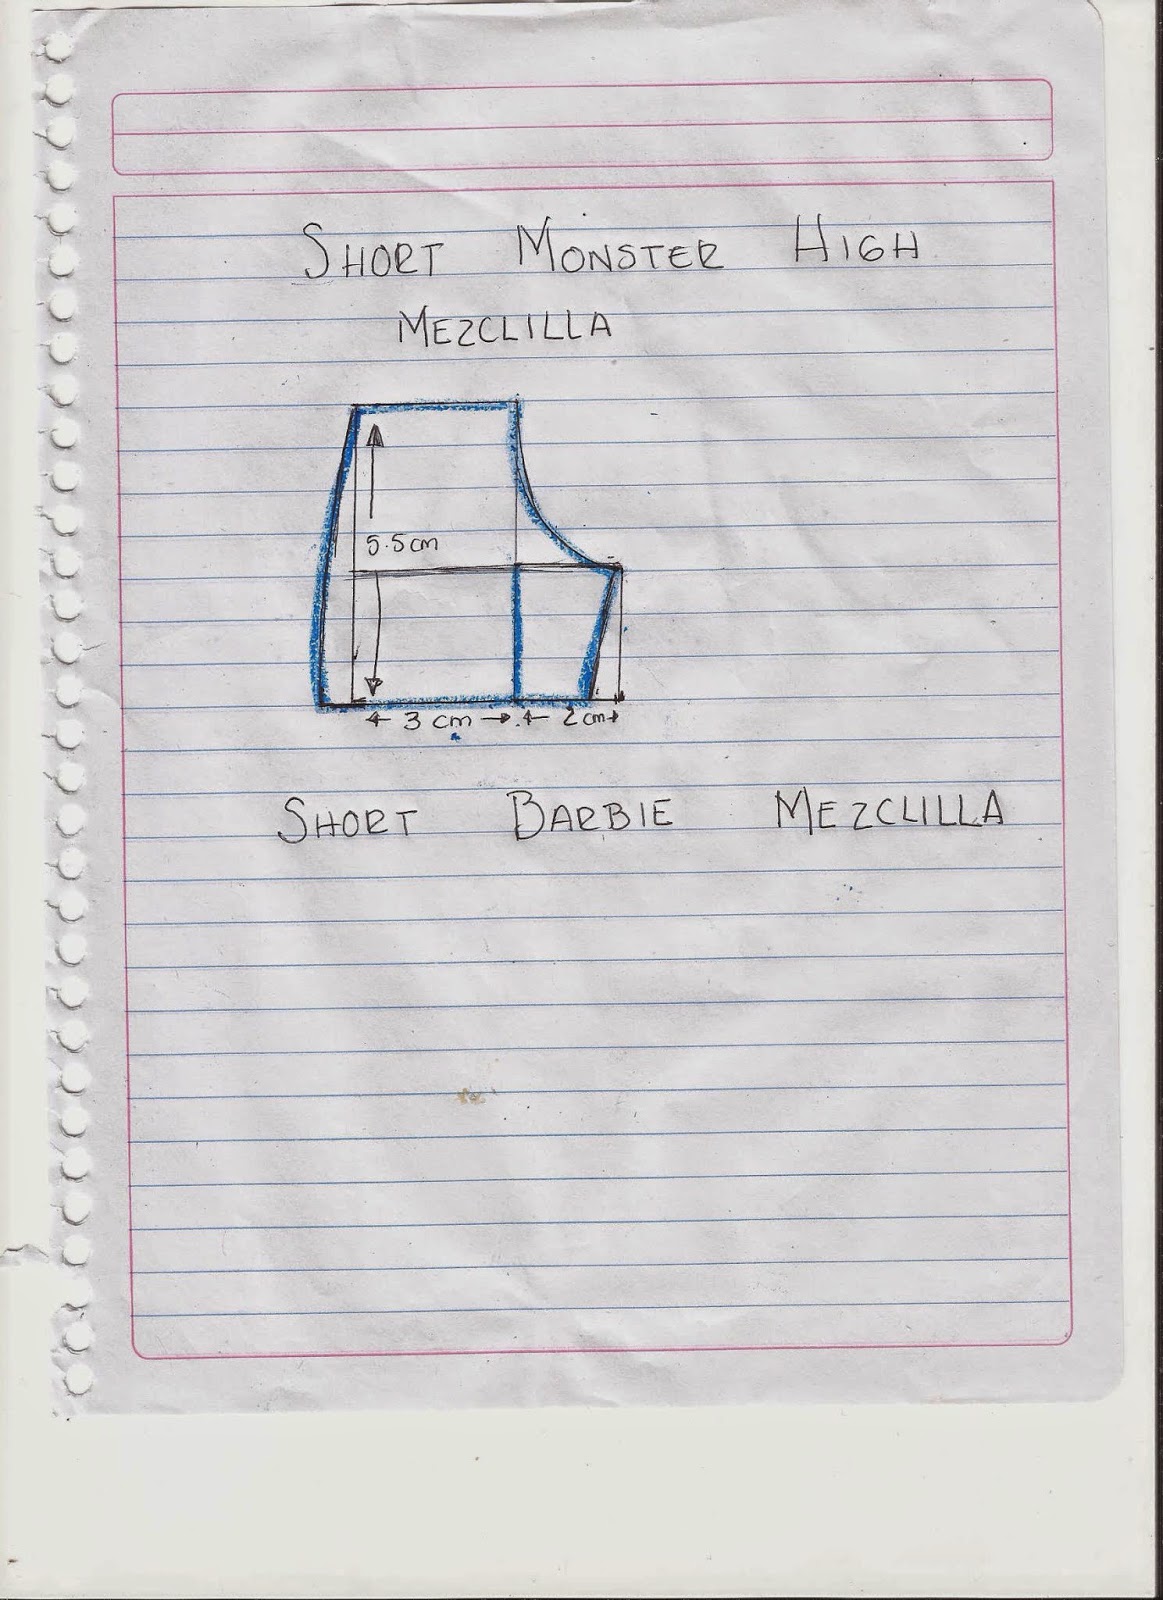 SHORT MONSTER HIGH
MEZCLILLA
5.5cm
3 cm 2 cm
SHORT BARBIE MEZCLILLA